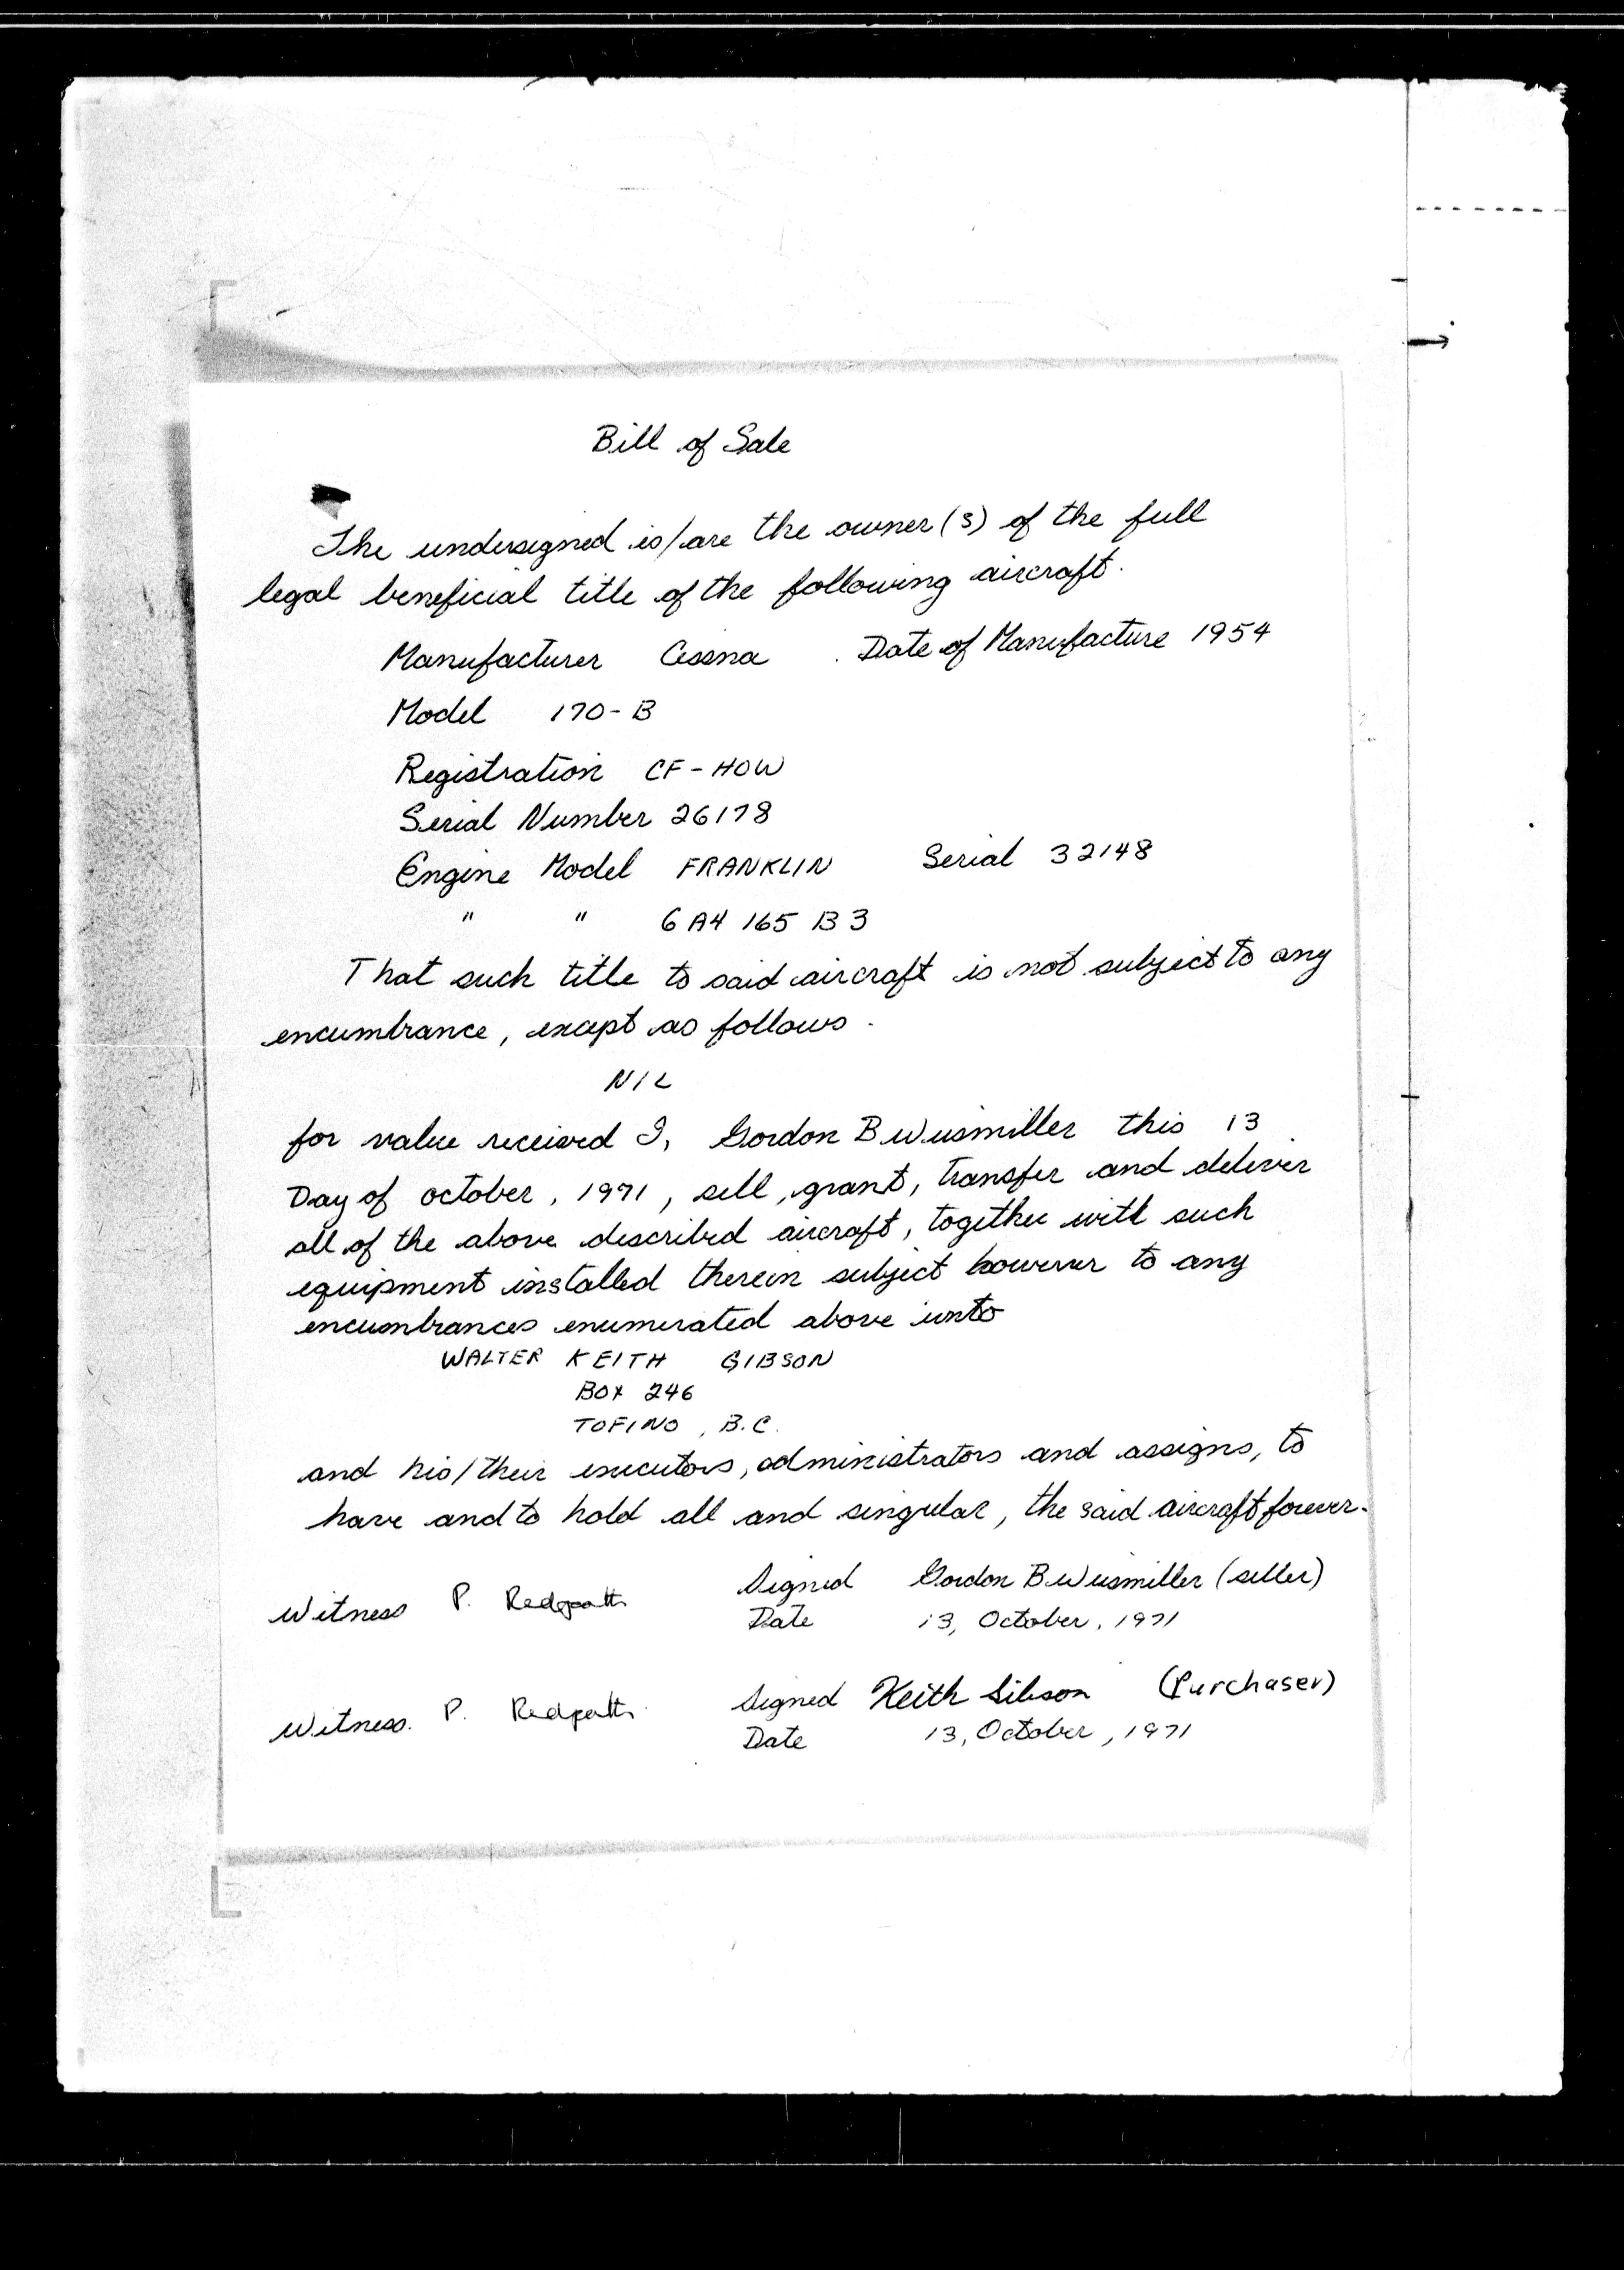 Bill of Sale
The undersigned is/are the owner(s) of the full
legal beneficial title of the following aircraft.
Manufacturer Cessna Date of Manufacture 1954
Model 170-B
Registration CF-HOW
Serial Number 26178
Engine Model FRANKLIN Serial 32148
" " 6A4 165 B3
That such title to said aircraft is not subject to any
encumbrance, except as follows.
NIL
for value received I, Gordon B Weismiller this 13
Day of october, 1971, sell, grant, transfer and deliver
all of the above described aircraft, together with such
equipment installed therein subject however to any
encumbrances enumerated above unto
WALTER KEITH GIBSON
BOX 246
TOFINO, B.C.
and his/their executors, administrators and assigns, to
have and to hold all and singular, the said aircraft forever.
Witness P. Redpath Signed Gordon B Weismiller (seller)
Date 13, October, 1971
Witness. P. Redpath Signed Keith Gibson (Purchaser)
Date 13, October, 1971